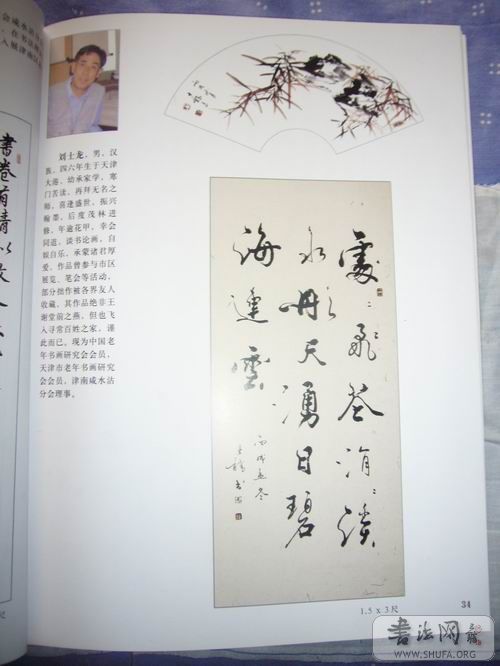 会咸水沽分
，在书法
入展津南区
書卷有情似故人
刘士龙，男，汉
族，四六年生于天津
大港，幼承家学，寒
门苦读，再拜无名之
师，喜逢盛世，振兴
翰墨，后度茂林进
修，年逾花甲，幸会
同道，谈书论画，自
娱自乐，承蒙诸君厚
爱，作品曾参与市区
展览、笔会等活动，
部分拙作被各界友人
收藏，其作品绝非王
谢堂前之燕，但也飞
入寻常百姓之家，谨
此而已。现为中国老
年书画研究会会员，
天津市老年书画研究
会会员，津南咸水沽
分会理事。
處
丹天湧日碧
海連雲
丙戌孟冬
1.5 x 3尺
34
尺
书法网
WWW.SHUFA.ORG